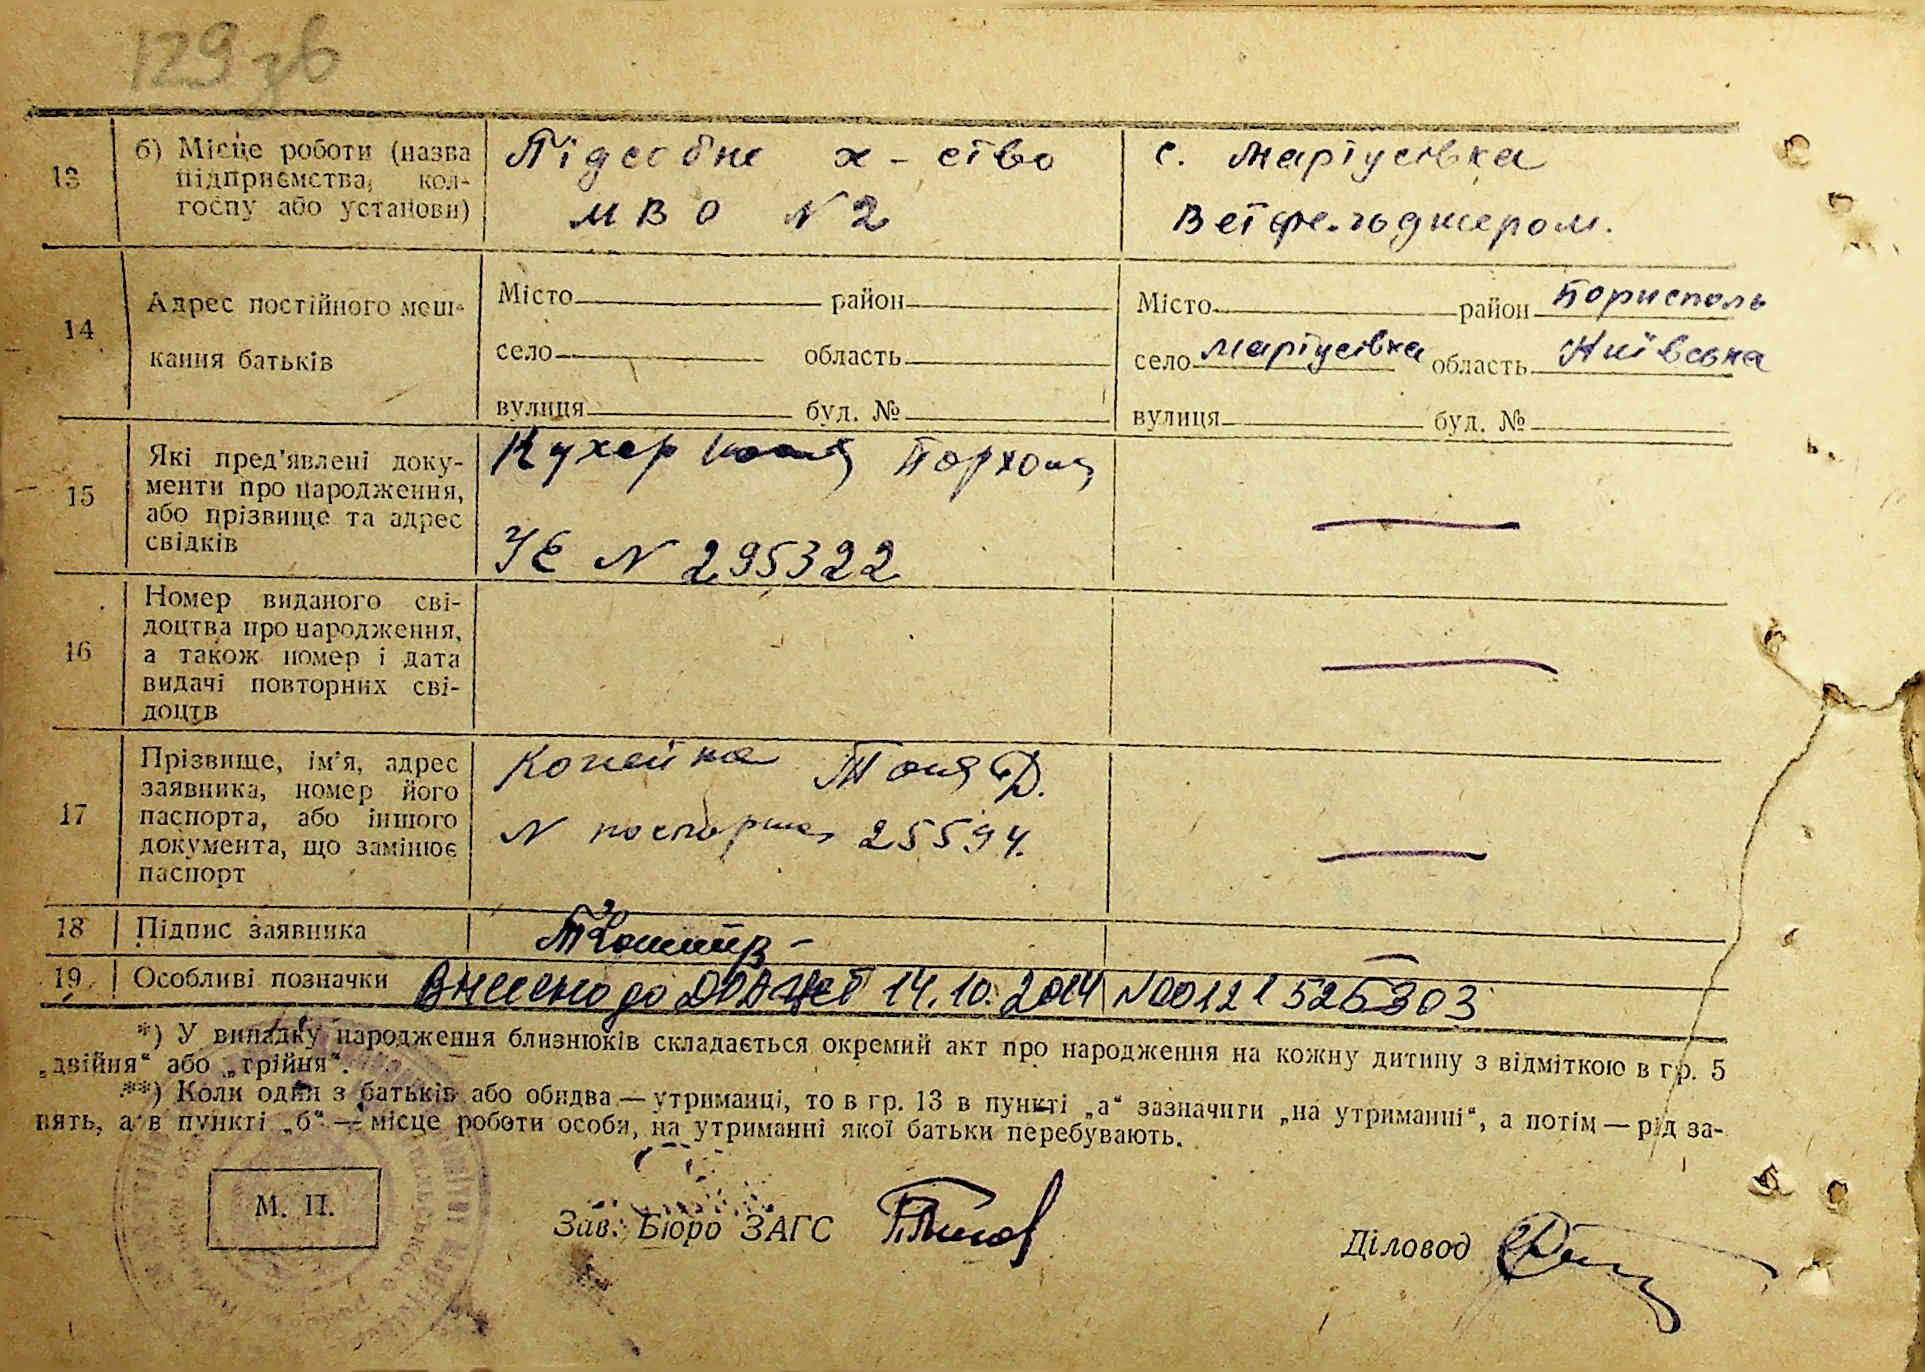 129 зв
13 б) Місце роботи (назва підприємства, колгоспу або установи)
Підсобне х-ство
МВО N 2
с. Мартусівка
Ветфельджером.
14 Адрес постійного мешкання батьків
Місто район
село область
вулиця буд. №
Місто район Борисполь
село Мартусівка область Київська
вулиця буд. №
15 Які пред'явлені документи про народження, або прізвище та адрес свідків
Кухер
УЄ N 295322
16 Номер виданого свідоцтва про народження, а також номер і дата видачі повторних свідоцтв
17 Прізвище, ім'я, адрес заявника, номер його паспорта, або іншого документа, що замінює паспорт
Копейка Таня Д.
N паспорта 25594.
18 Підпис заявника
19 Особливі позначки
Внесено до ДРАЦСГ 14.10.2014 N00121525303
*) У випадку народження близнюків складається окремий акт про народження на кожну дитину з відміткою в гр. 5
„двійня“ або „трійня“.
**) Коли один з батьків або обидва — утриманці, то в гр. 13 в пункті „а“ зазначити „на утриманні“, а потім — рід за-
нять, а в пункті „б“ — місце роботи особи, на утриманні якої батьки перебувають.
М. П.
Зав. Бюро ЗАГС
Діловод